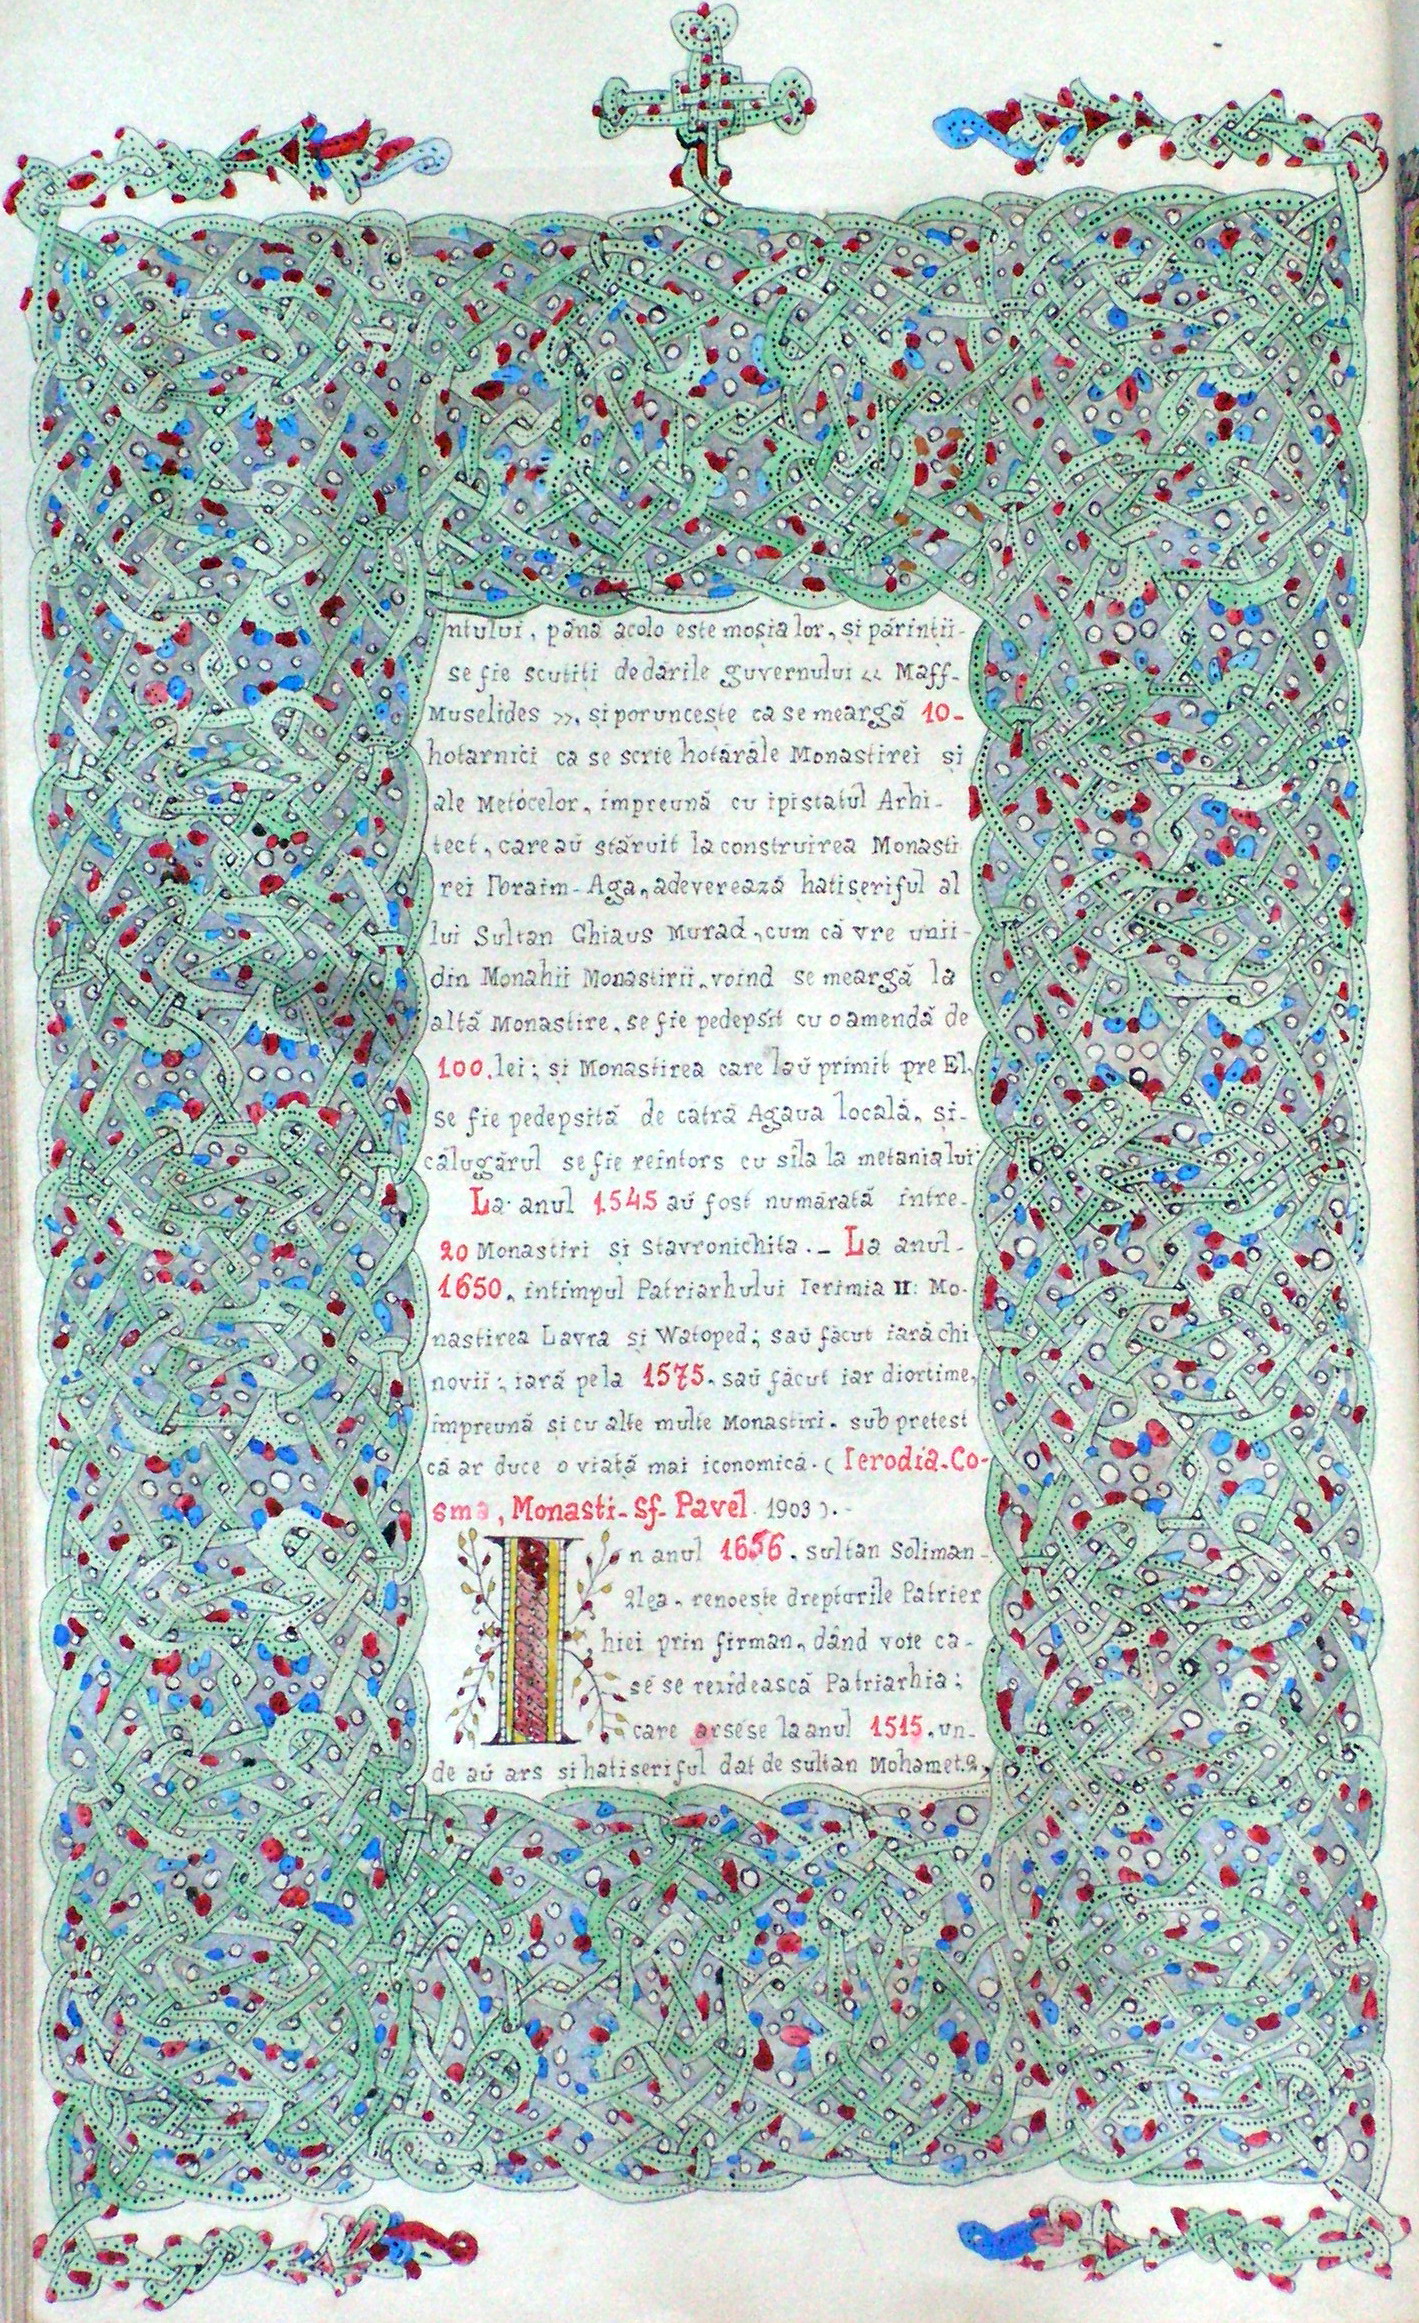 ntului, pănă acolo este moșia lor, și părinții-
se fie scutiți de dările guvernului « Maff-
Muselides », și poruncește ca se meargă 10-
hotarnici ca se scrie hotărăle Monastirei și
ale Metócelor, împreună cu ipistatul Arhi-
tect, care aŭ stăruit la construirea Monasti
rei Ibraim-Aga, adeverează hatișeriful al
lui Sultan Ghiaus Murad, cum că vre unii-
din Monahii Monastirii, voind se meargă la
altă Monastire, se fie pedepsit cu o amendă de
100. lei; și Monastirea care laŭ primit pre El,
se fie pedepsită de cătră Agaua locală, și-
călugărul se fie reîntors cu sila la metania lui
La anul 1545 aŭ fost numărată între-
20 Monastiri și Stavronichita. _ La anul-
1650, in timpul Patriarhului Ierimia II: Mo-
nastirea Lavra și Watoped; saŭ făcut iară chi
novii; iară pe la 1575. saŭ făcut iar diortime,
împreună și cu alte multe Monastiri. sub pretest
că ar duce o viață mai iconomică. ( Ierodia. Co-
sma, Monasti- Sf- Pavel. 1903 ).-
In anul 1656. sultan Soliman-
2lea. renoește drepturile Patrier
hiei prin firman, dând voie ca-
sé se rezidească Patriarhia;
care arsése la anul 1515, un-
de aŭ ars și hatișeriful dat de sultan Mohamet. 2,